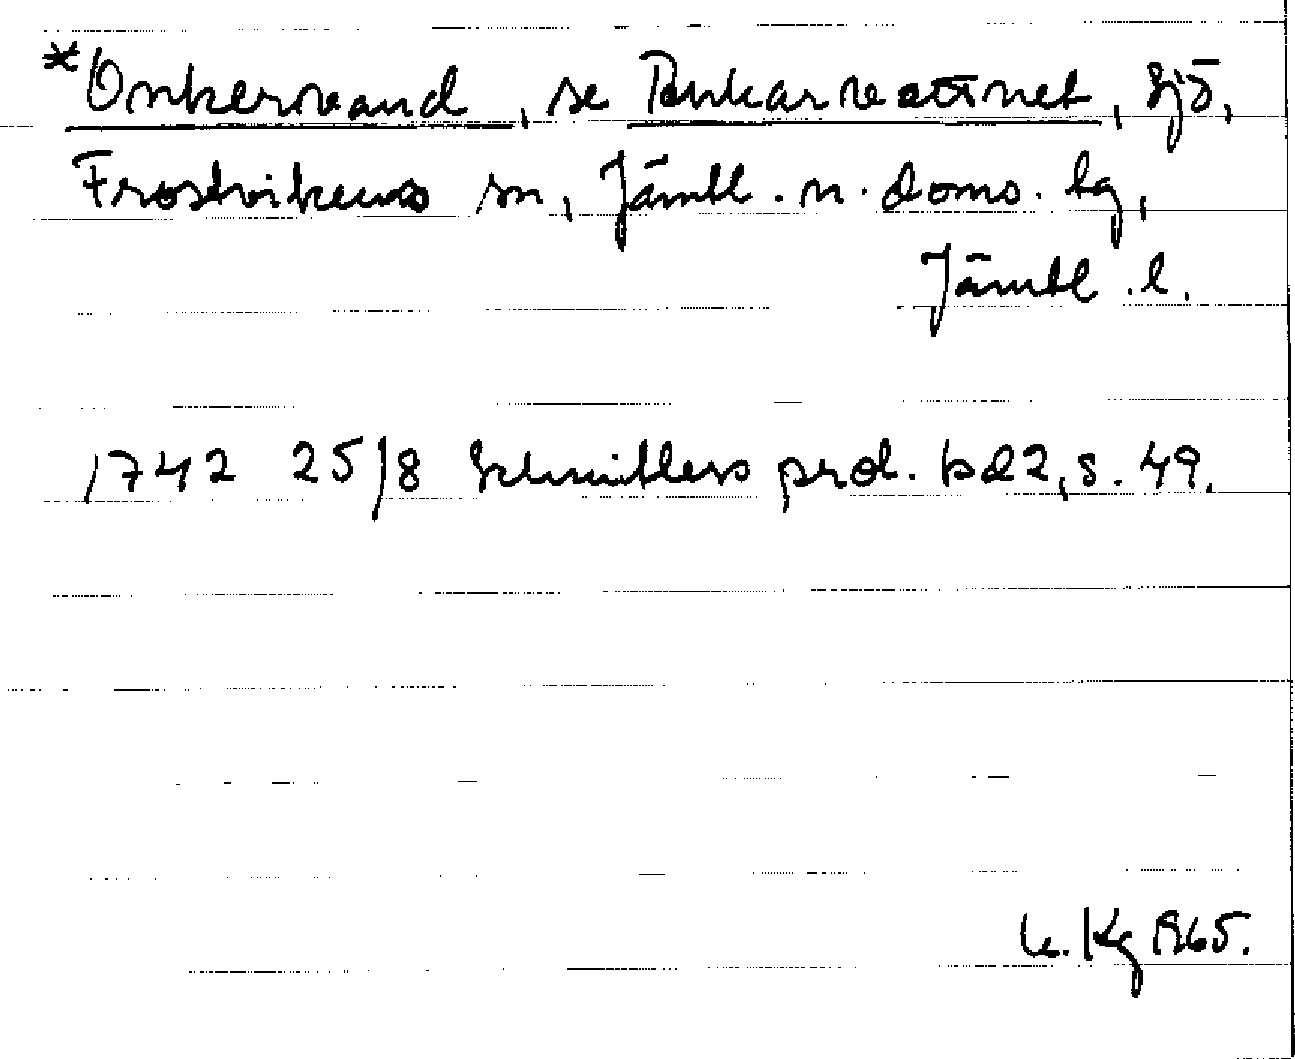 *Onkervand, se Ankarvattnet, sjö,
Frostvikens sn, Jämtl. n. doms. lg,
Jämtl. l.
1742 25/8 Schnitlers prot. bd 2, s. 49.
Kg 1965.